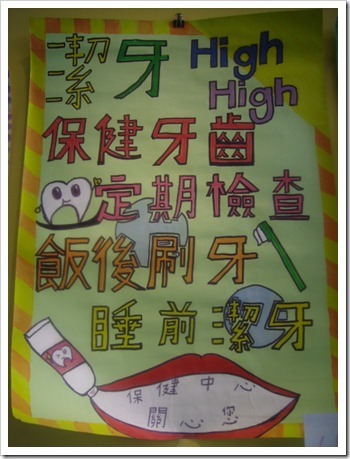 潔牙 High
High
保健牙齒
定期檢查
飯後刷牙
睡前潔牙
保健中心
關心您